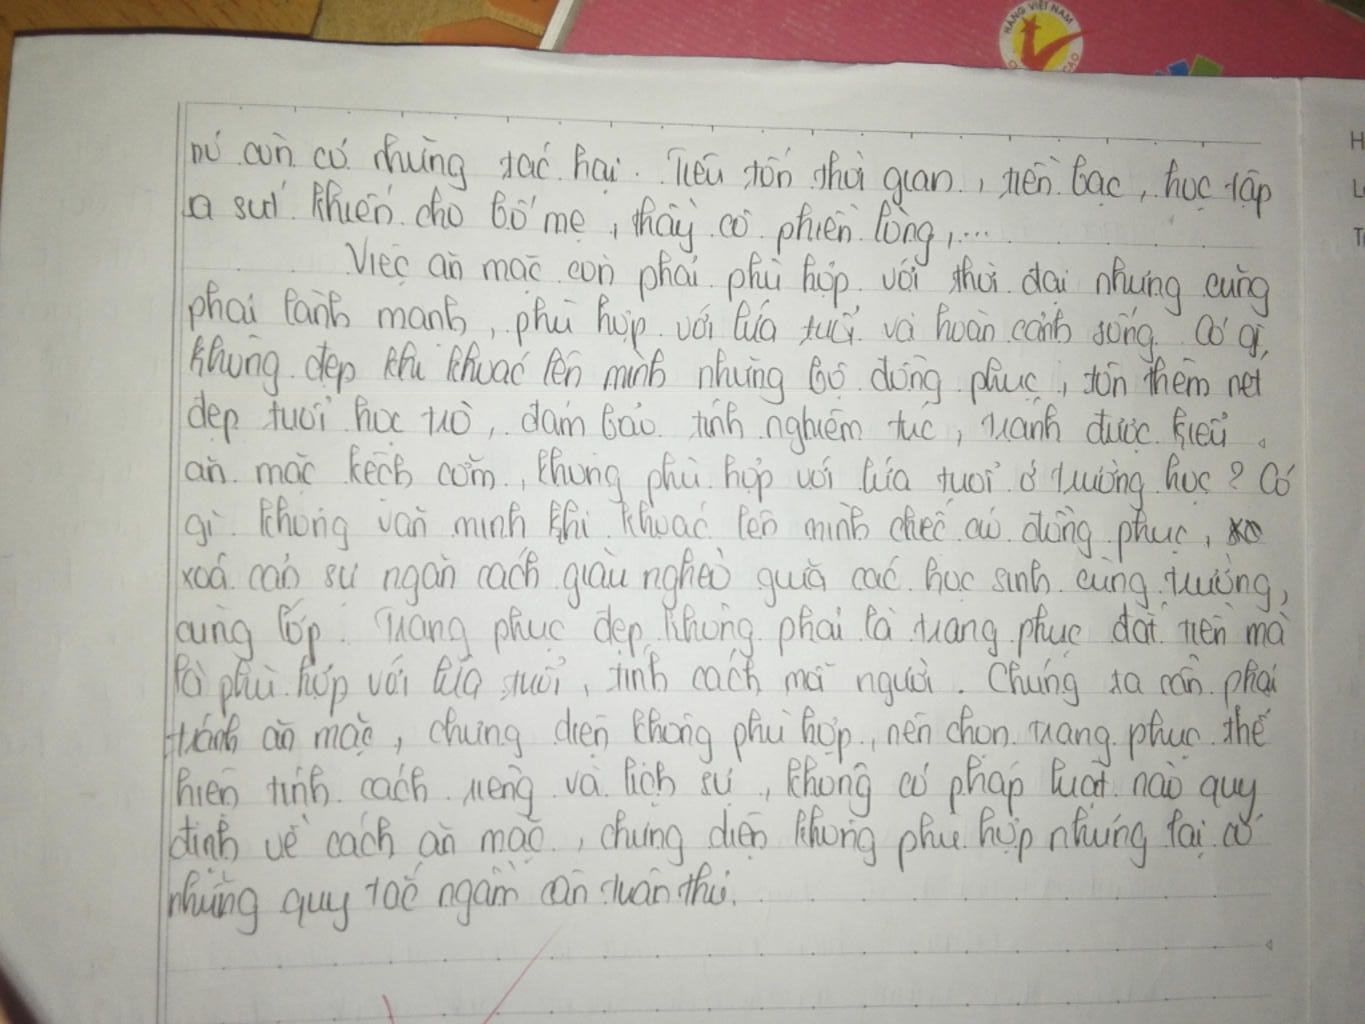 HÀNG VIỆT NAM
CAO
H
L
T
nó còn có những tác hại. Tiêu tốn thời gian, tiền bạc, học tập
sa sút khiến cho bố mẹ, thầy cô phiền lòng,...
Việc ăn mặc còn phải phù hợp với thời đại nhưng cũng
phải lành mạnh, phù hợp với lứa tuổi và hoàn cảnh sống. Có gì
không đẹp khi khoác lên mình những bộ đồng phục, tôn thêm nét
đẹp tuổi học trò, đảm bảo tính nghiêm túc, tránh được kiểu
ăn mặc kệch cỡm, không phù hợp với lứa tuổi ở trường học? Có
gì không văn minh khi khoác lên mình chiếc áo đồng phục,
xoá cản sự ngăn cách giàu nghèo giữa các học sinh cùng trường,
cùng lớp. Trang phục đẹp không phải là trang phục đắt tiền mà
là phù hợp với lứa tuổi, tính cách mỗi người. Chúng ta cần phải
tránh ăn mặc, chưng diện không phù hợp, nên chọn trang phục thể
hiện tính cách riêng và lịch sự, không có pháp luật nào quy
định về cách ăn mặc, chưng diện không phù hợp nhưng lại có
những quy tắc ngầm cần tuân thủ.